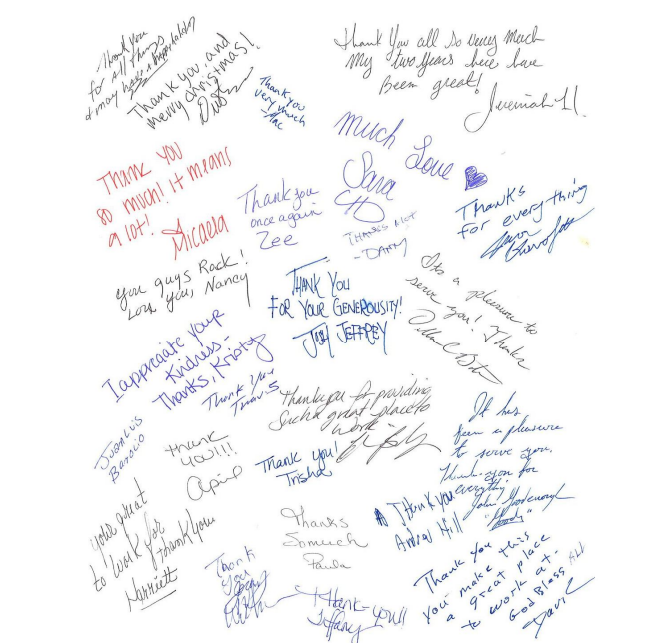 Thank you
for all things
& may have a happy
Thank you, and
merry christmas!
Thank you
very much
Mac
Thank You all so very much
My two years here have
Been great!
Jeremiah H.
much Love
Sara
THANK YOU
so much! it means
a lot!
Micaela
Thank you
once again
Zee
THANKS ALOT
-DANNY
Thanks
for everything
you guys Rock!
Love you, Nancy
THANK YOU
FOR YOUR GENEROUSITY!
JEFFREY
Its a pleasure to
serve you! Thanks
I appreaate your
Kindness-
Thanks, Kristy
Thank You
Travis
Thankyou for providing
Such a great place to
work
Juan Luis
thank
you!!!!
April
Thank you!
Trisha
It has
been a pleasure
to serve you.
Thank-you for
everything
John
"Woody"
Thank you
Andrew Hill
your great
to work for
thank you
Harriett
Thanks
So much
Paula
Thank
You
Thank-you!!
Tiffany
Thank you
you make this
a great place
to work at.
God Bless